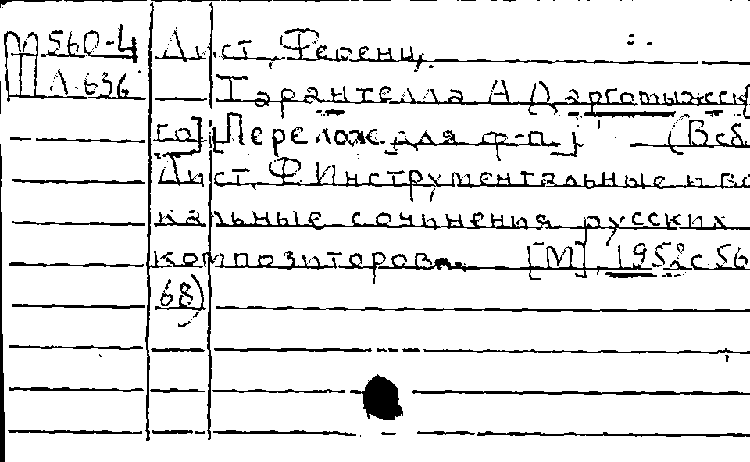 Ш560-4 Лист, Ференц,
Л.636 Тарантелла А Даргомыжск
[го] [Перелож. для ф-п.] (В сб
Лист, Ф. Инструментальные и во
кальные сочинения русских
композиторов. [М] 1952 с 56
68)